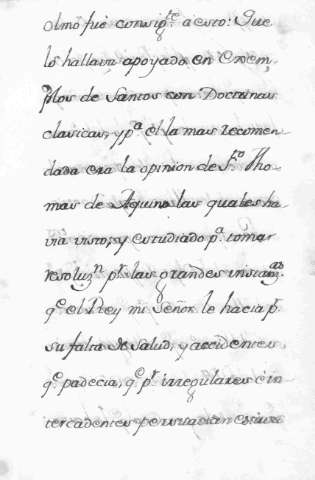 olmo fue consigte a esto: Que
los hallava apoyado en Exem,
plos de Santos con Doctrinas
clasicas, y pa el la mas recomen-
dada era la opinion de Sto Tho-
mas de Aquino las quales ha-
via visto, y estudiado pa tomar
resoluzn pr las grandes instanzas
qe el Rey mi Señor le hacia pr
su falta de salud, y accidentes
qe padecia, qe pr irregulares é in
tercadentes persuadian